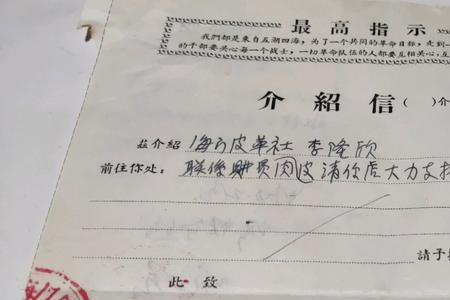 最高指示
我们都是来自五湖四海，为了一个共同的革命目标，走到一
的干部要关心每一个战士，一切革命队伍的人都要互相关心，互
介紹信（ ）介
茲介紹 皮革社 李隆欣
前往你处： 联係购 肉 请你 大力支持
請予
此致